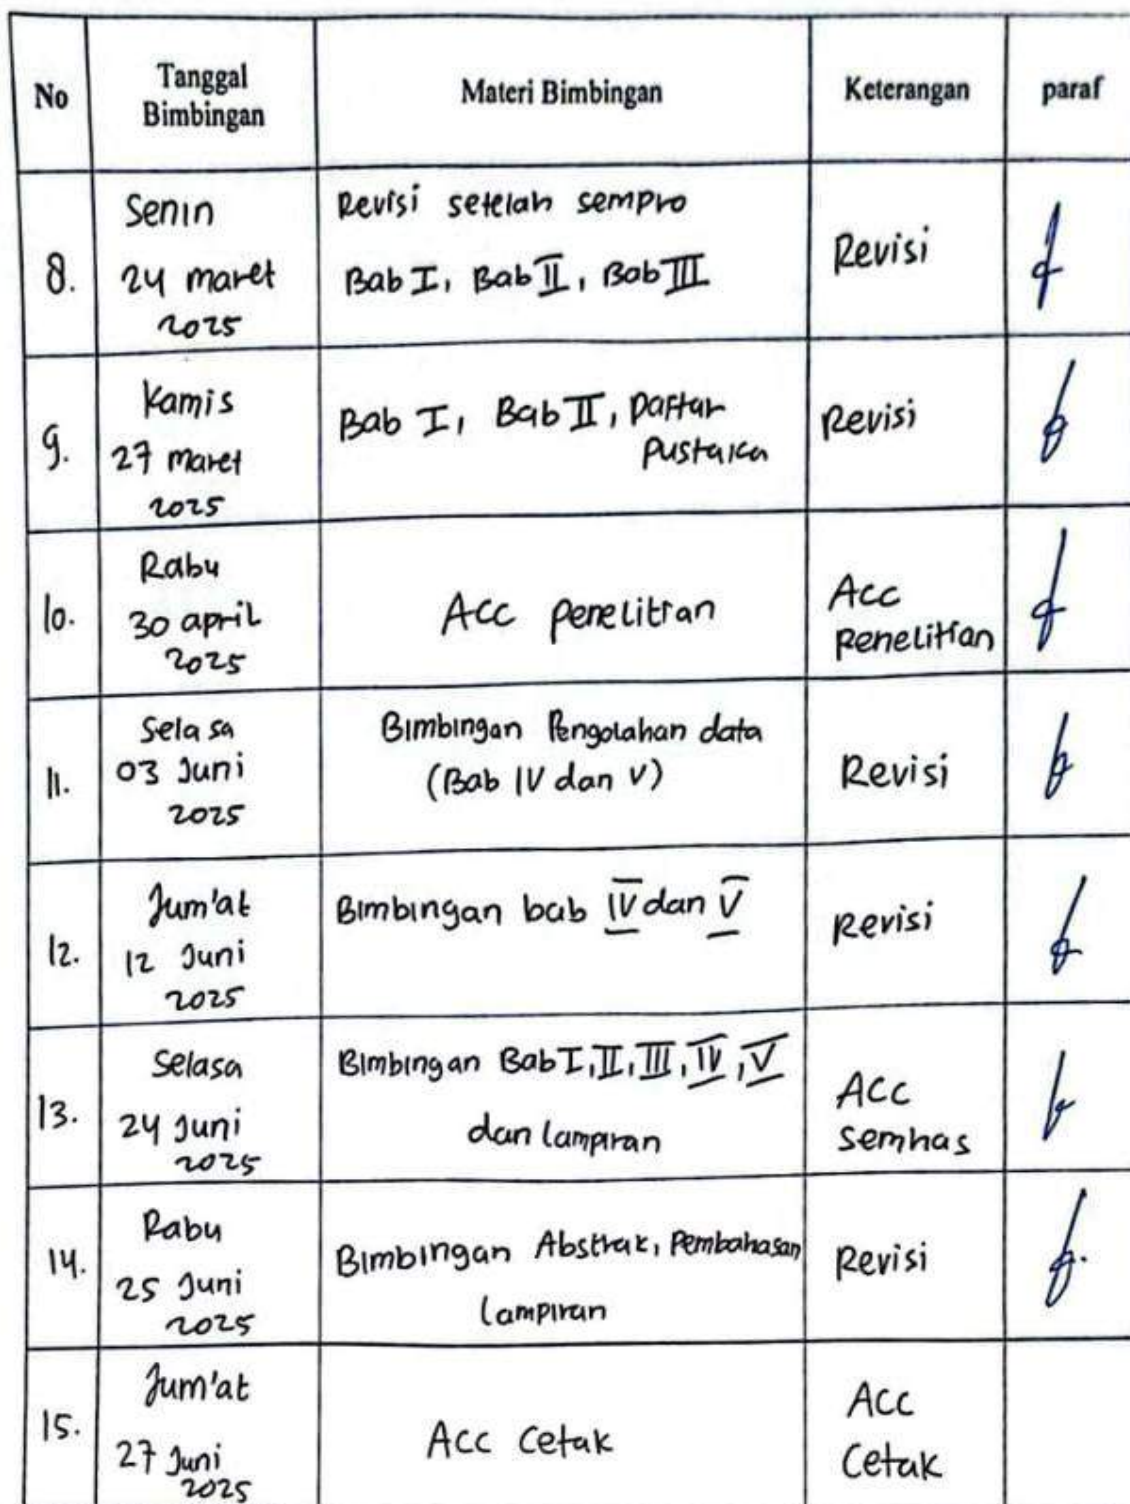 No
Tanggal
Bimbingan
Materi Bimbingan
Keterangan
paraf
8.
Senin
24 maret
2025
Revisi setelah sempro
Bab I, Bab II, Bab III
Revisi
9.
Kamis
27 maret
2025
Bab I, Bab II, Daftar
Pustaka
Revisi
10.
Rabu
30 april
2025
Acc penelitian
Acc
Penelitian
11.
Selasa
03 Juni
2025
Bimbingan Pengolahan data
(Bab IV dan V)
Revisi
12.
Jum'at
12 Juni
2025
Bimbingan bab IV dan V
Revisi
13.
Selasa
24 Juni
2025
Bimbingan Bab I, II, III, IV, V
dan lampiran
Acc
semhas
14.
Rabu
25 Juni
2025
Bimbingan Abstrak, Pembahasan
lampiran
Revisi
15.
Jum'at
27 Juni
2025
Acc Cetak
Acc
Cetak